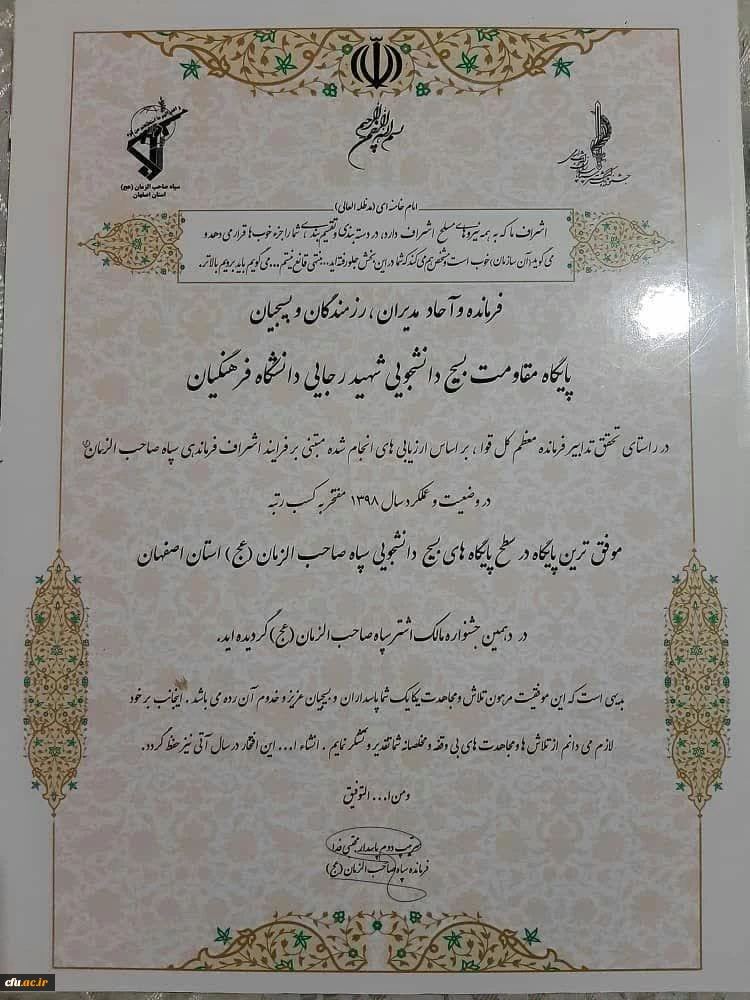 بسم الله الرحمن الرحیم
سپاه صاحب الزمان (عج)
استان اصفهان
امام خامنه ای (مدظله العالی)
اشراف ما که به همه نیروهای مسلح اشراف دارد، در دسته بندی و تقسیم بندی، شما را جزء خوب ها قرار می دهد و
می گوید (آن سازمان) خوب است و شخص هم می کند که شما در این بخش جلو رفته اید... منتهی قانع نیستم... می گویم باید برویم بالاتر.
فرمانده و آحاد مدیران ، رزمندگان و بسیجیان
پایگاه مقاومت بسیج دانشجویی شهید رجایی دانشگاه فرهنگیان
در راستای تحقق تدابیر فرمانده معظم کل قوا ، بر اساس ارزیابی های انجام شده مبتنی بر فرایند اشراف فرماندهی سپاه صاحب الزمان
در وضعیت و عملکرد سال ۱۳۹۸ مفتخر به کسب رتبه
موفق ترین پایگاه در سطح پایگاه های بسیج دانشجویی سپاه صاحب الزمان (عج) استان اصفهان
در دهمین جشنواره مالک اشتر سپاه صاحب الزمان (عج) گردیده اید.
بدیهی است که این موفقیت مرهون تلاش و مجاهدت یکایک شما پاسداران و بسیجیان عزیز و خدوم آن رده می باشد . اینجانب بر خود
لازم می دانم از تلاش ها و مجاهدت های بی وقفه و مخلصانه شما تقدیر و تشکر نمایم . انشاء ا... این افتخار در سال آتی نیز حفظ گردد.
و من ا... التوفیق
سرتیپ دوم پاسدار مجتبی فدا
فرمانده سپاه صاحب الزمان (عج)
cfu.ac.ir